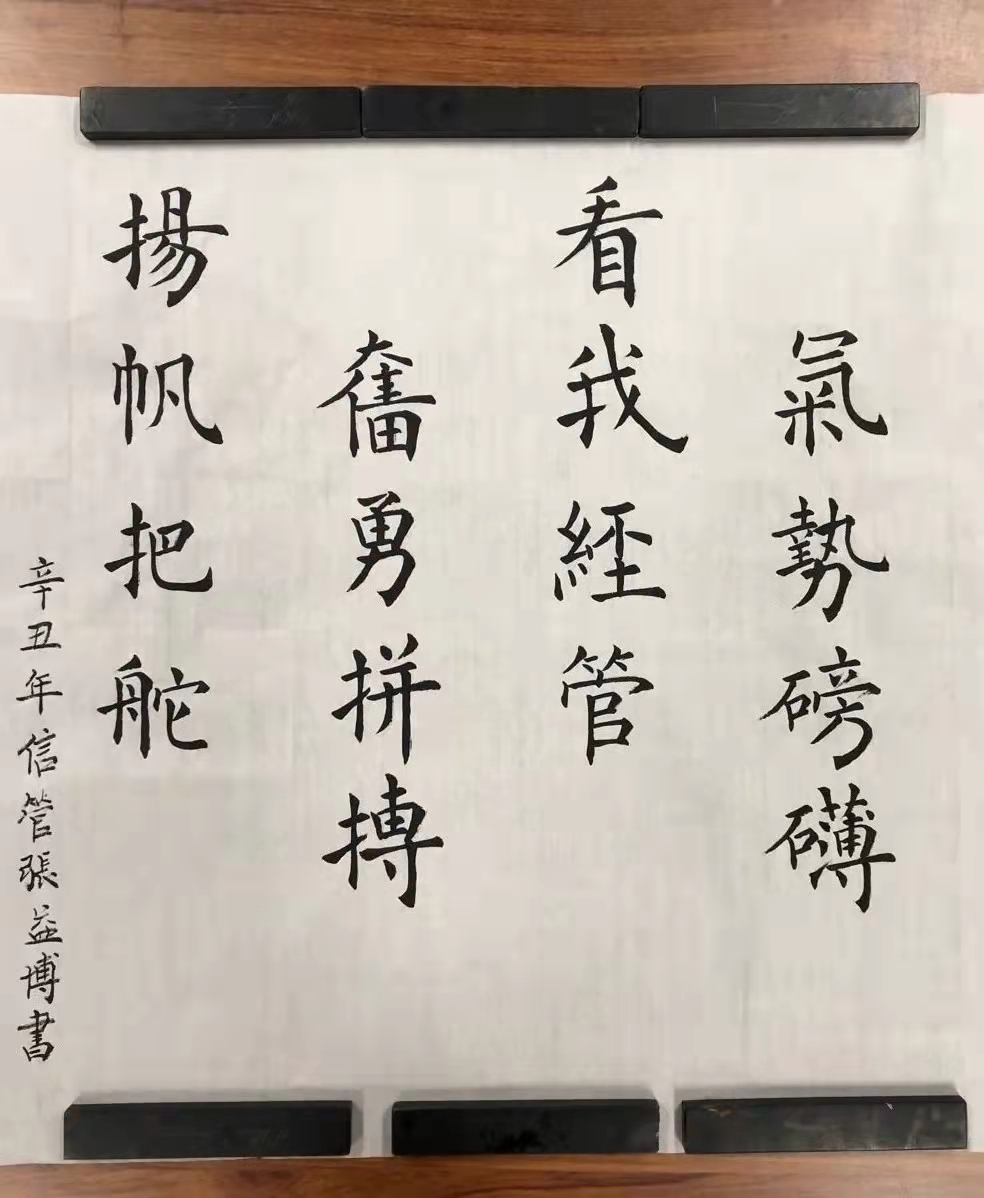 氣勢磅礴
看我經管
奮勇拼搏
揚帆把舵
辛丑年信管張益博書